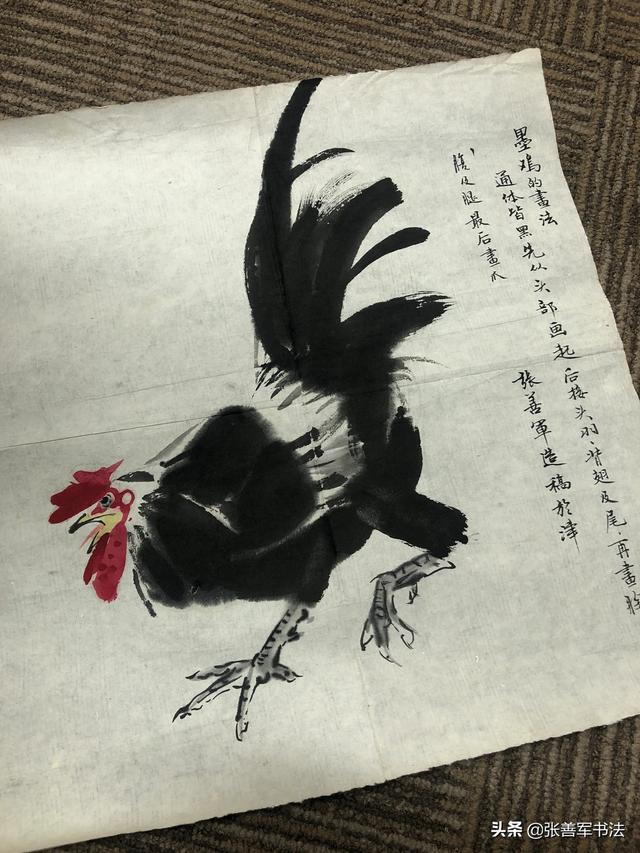 墨鸡的畫法
通体皆黑先从头部画起后接头羽、背翅及尾.再畫胸
腹及腿最后畫爪
張善軍造稿於津
头条 @张善军书法